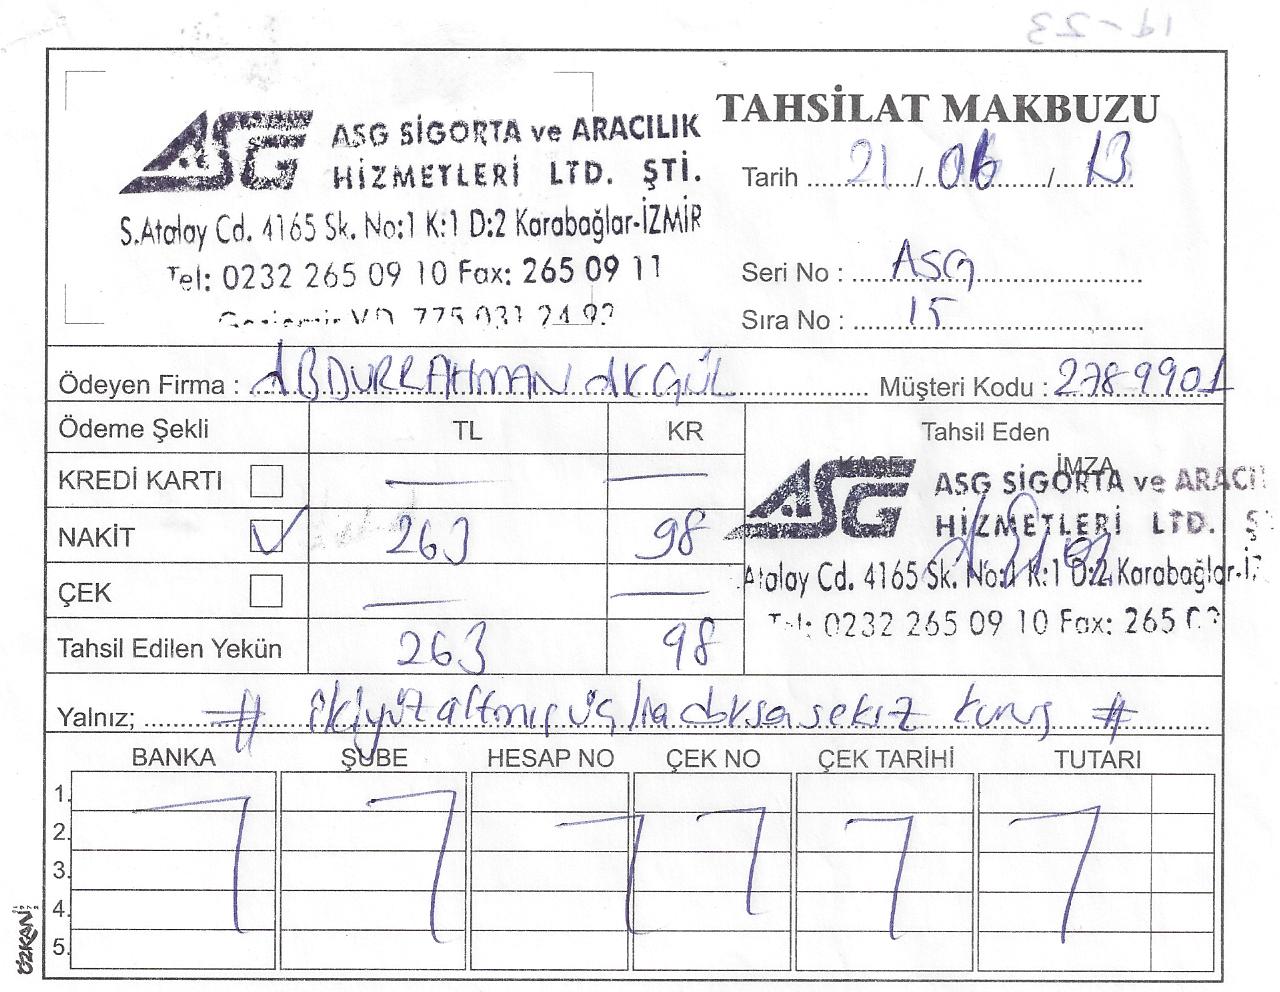 ASG ASG SİGORTA ve ARACILIK
HİZMETLERİ LTD. ŞTİ.
S.Atalay Cd. 4165 Sk. No:1 K:1 D:2 Karabağlar-İZMİR
Tel: 0232 265 09 10 Fax: 265 09 11
Gaziemir V.D. 775 031 24 92
TAHSİLAT MAKBUZU
Tarih 21 / 06 / 13
Seri No : ASG
Sıra No : 15
Ödeyen Firma : ABDURRAHMAN AKGÜL Müşteri Kodu : 2789901
Ödeme Şekli TL KR Tahsil Eden
KAŞE İMZA
KREDİ KARTI — —
NAKİT ✓ 263 98
ÇEK — —
Tahsil Edilen Yekün 263 98
ASG ASG SİGORTA ve ARACI
HİZMETLERİ LTD. Ş
Atalay Cd. 4165 Sk. No:1 K:1 D:2 Karabağlar-İZ
Tel: 0232 265 09 10 Fax: 265 0
Yalnız; # ikiyüzaltmışüç lira doksansekiz kuruş #
BANKA ŞUBE HESAP NO ÇEK NO ÇEK TARİHİ TUTARI
1.
2.
3.
4.
5.
ÖZKAN